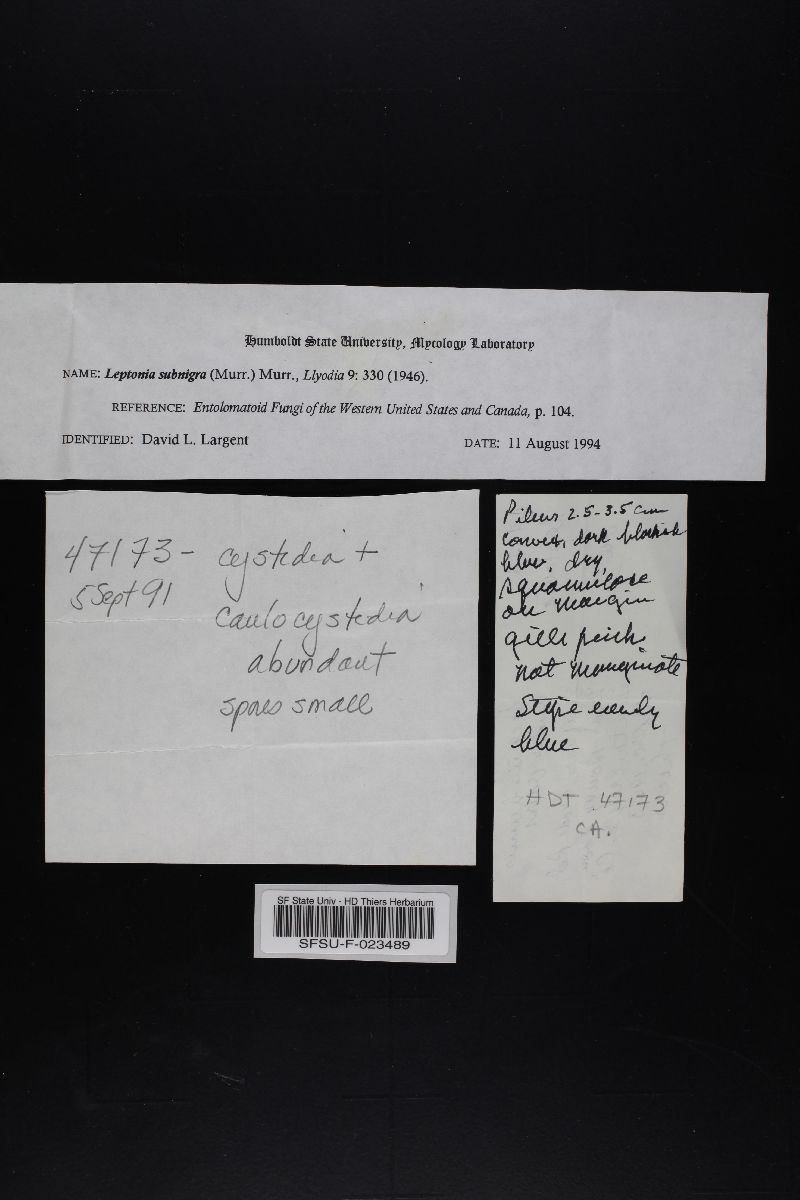 Humboldt State University, Mycology Laboratory
NAME: Leptonia subnigra (Murr.) Murr., Llyodia 9: 330 (1946).
REFERENCE: Entolomatoid Fungi of the Western United States and Canada, p. 104.
IDENTIFIED: David L. Largent DATE: 11 August 1994
47173- cystedia +
5 Sept 91
caulocystedia
abundant
spores small
Pileus 2.5-3.5 cm
convex, dark blackish
blue, dry,
squamulose
on margin
gills pink
not marginate
Stipe
blue
HDT 47173
CA.
SF State Univ - HD Thiers Herbarium
SFSU-F-023489